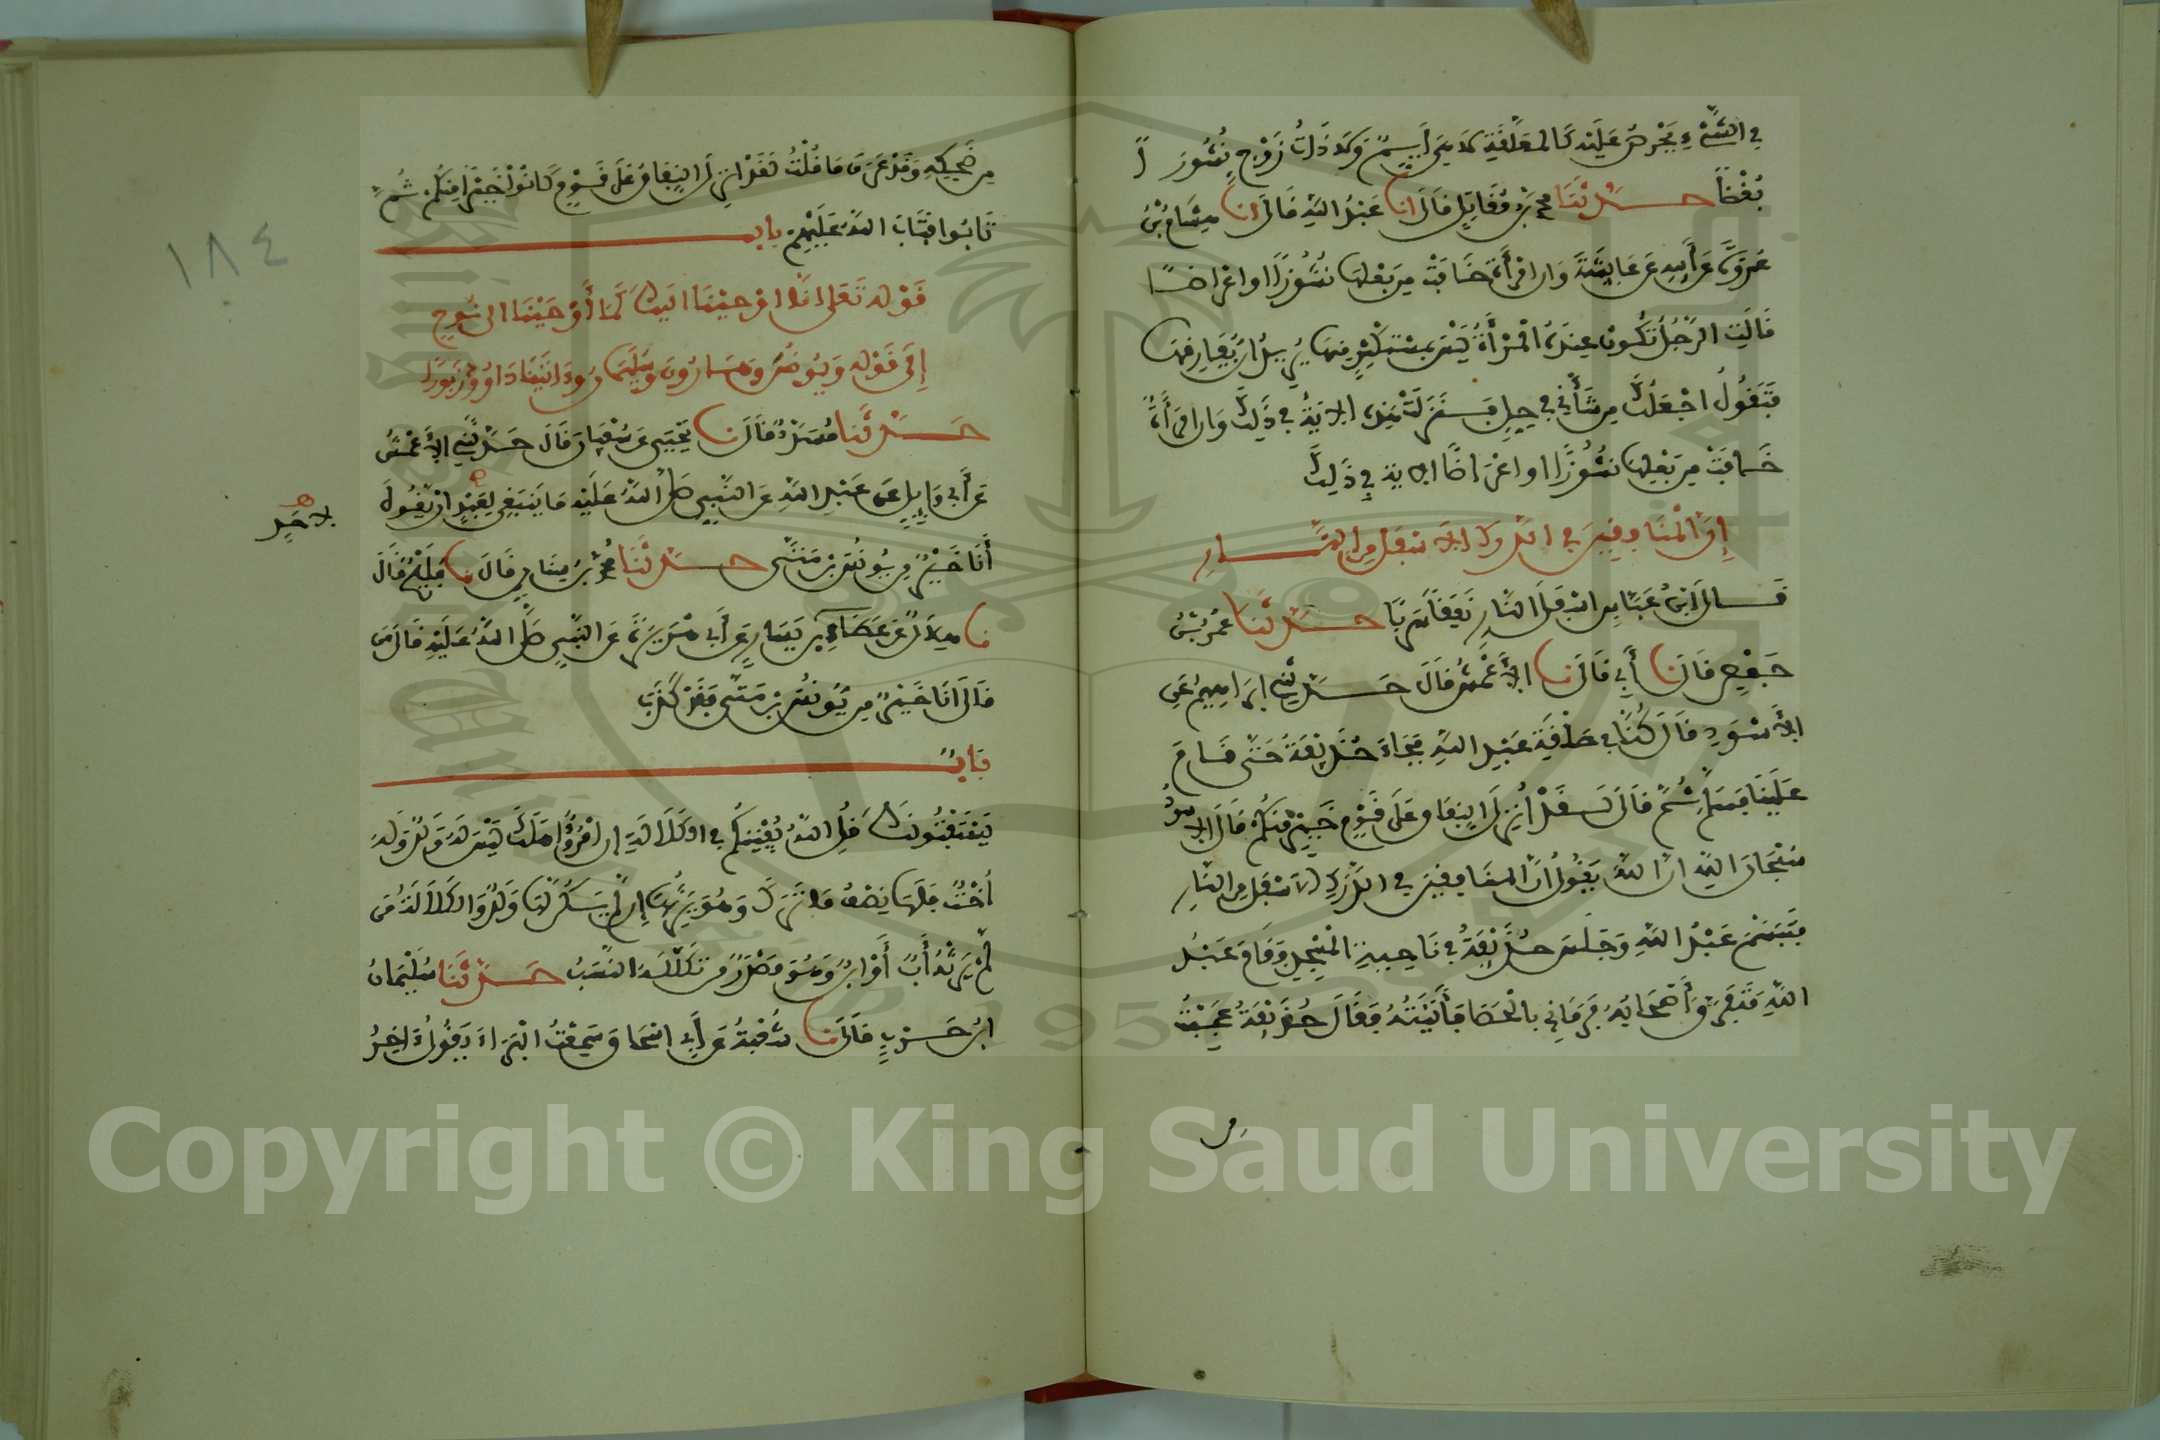 في الشيء يحرص عليه كالمعلقة لا هي أيم ولا ذات زوج نشوزا
بغضا حدثنا محمد بن مقاتل قال انا عبد الله قال انا هشام بن
عروة عن أبيه عن عايشة وان امرأة خافت من بعلها نشوزا او اعراضا
قالت الرجل تكون عنده المرأة ليس بمستكثر منها يريد ان يفارقها
فتقول اجعلك من شأني في حل فنزلت هذه الاية في ذلك وان امرأة
خافت من بعلها نشوزا او اعراضا الاية في ذلك
إن المنافقين في الدرك الاسفل من النار
قال ابن عباس اسفل النار نفقا سربا حدثنا عمر بن
حفص قال نا أبي قال نا الأعمش قال حدثني ابراهيم عن
الأسود قال كنا في حلقة عبد الله فجاء حذيفة حتى قام
علينا فسلم ثم قال لقد أنزل النفاق على قوم خير منكم قال الاسود
سبحان الله ان الله يقول ان المنافقين في الدرك الاسفل من النار
فتبسم عبد الله وجلس حذيفة في ناحية المسجد فقام عبد
الله فتفرق أصحابه فرماني بالحصا فأتيته فقال حذيفة عجبت
من
من ضحكه وقد عرف ما قلت لقد انزل النفاق على قوم كانوا خيرا منكم ثم
تابوا فتاب الله عليهم باب
قوله تعلى انا اوحينا اليك كما أوحينا الى نوح
إلى قوله ويونس وهارون وسليمان وءاتينا داوود زبورا
حدثنا مسدد قال نا يحيى عن سفيان قال حدثني الأعمش
عن أبي وايل عن عبد الله عن النبي صلى الله عليه ما ينبغي لعبد ان يقول
لاحد
أنا خير من يونس بن متى حدثنا محمد بن سنان قال نا فليح قال
نا هلال عن عطاء بن يسار عن أبي هريرة عن النبي صلى الله عليه قال من
قال انا خير من يونس بن متى فقد كذب
باب
يستفتونك قل الله يفتيكم في الكلالة إن امرؤ هلك ليس له ولد وله
أخت فلها نصف ما ترك وهو يرثها إن لم يكن لها ولد والكلالة من
لم يرثه أب أو ابن وهو مصدر من تكلله النسب حدثنا سليمان
ابن حرب قال نا شعبة عن أبي اسحاق سمعت البراء يقول ءاخر
١٨٤
Copyright © King Saud University
1957